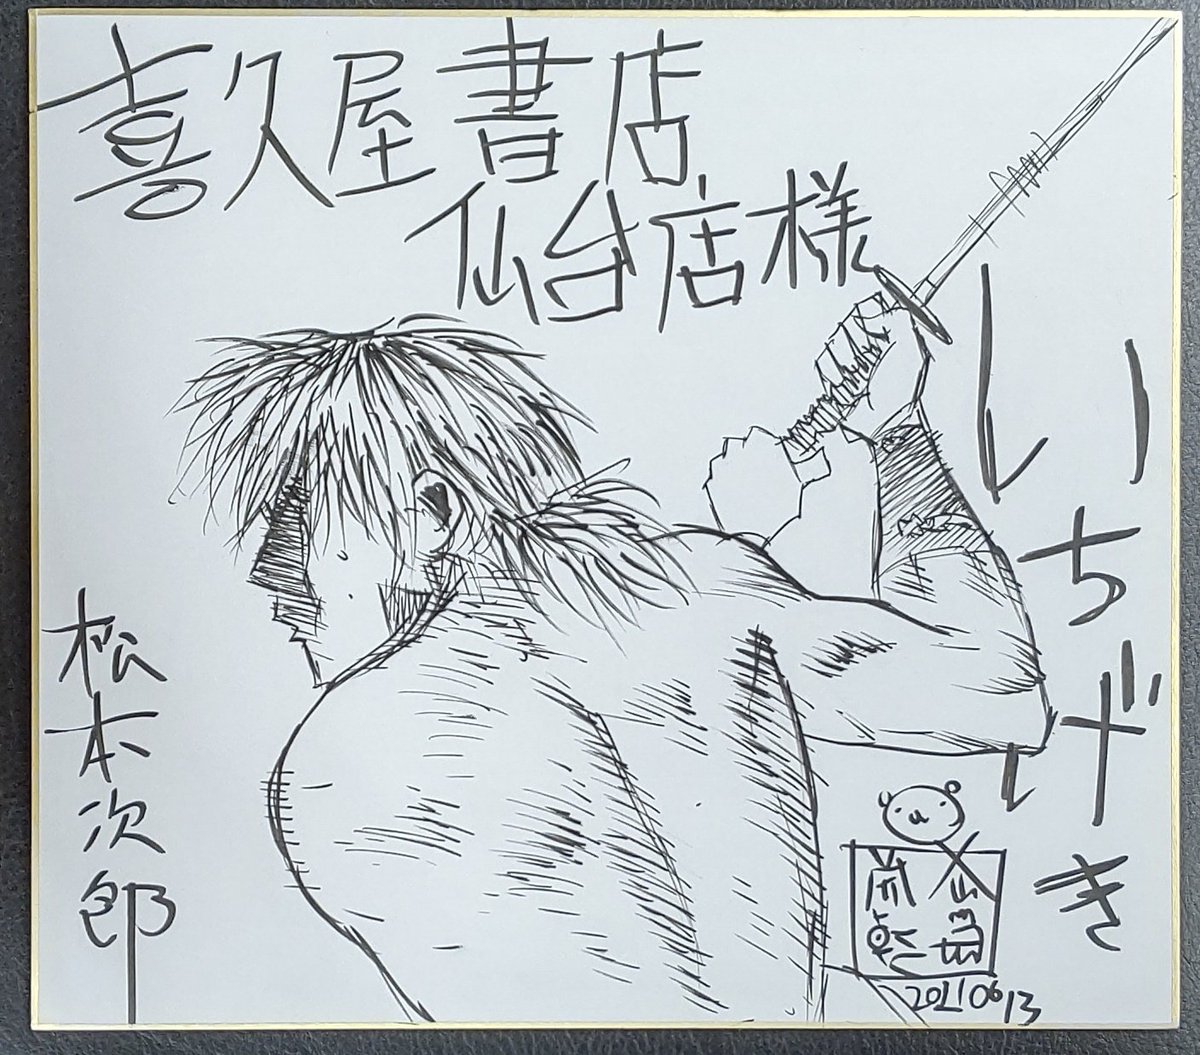 喜久屋書店
仙台店様
いちげき
松本次郎
20210613